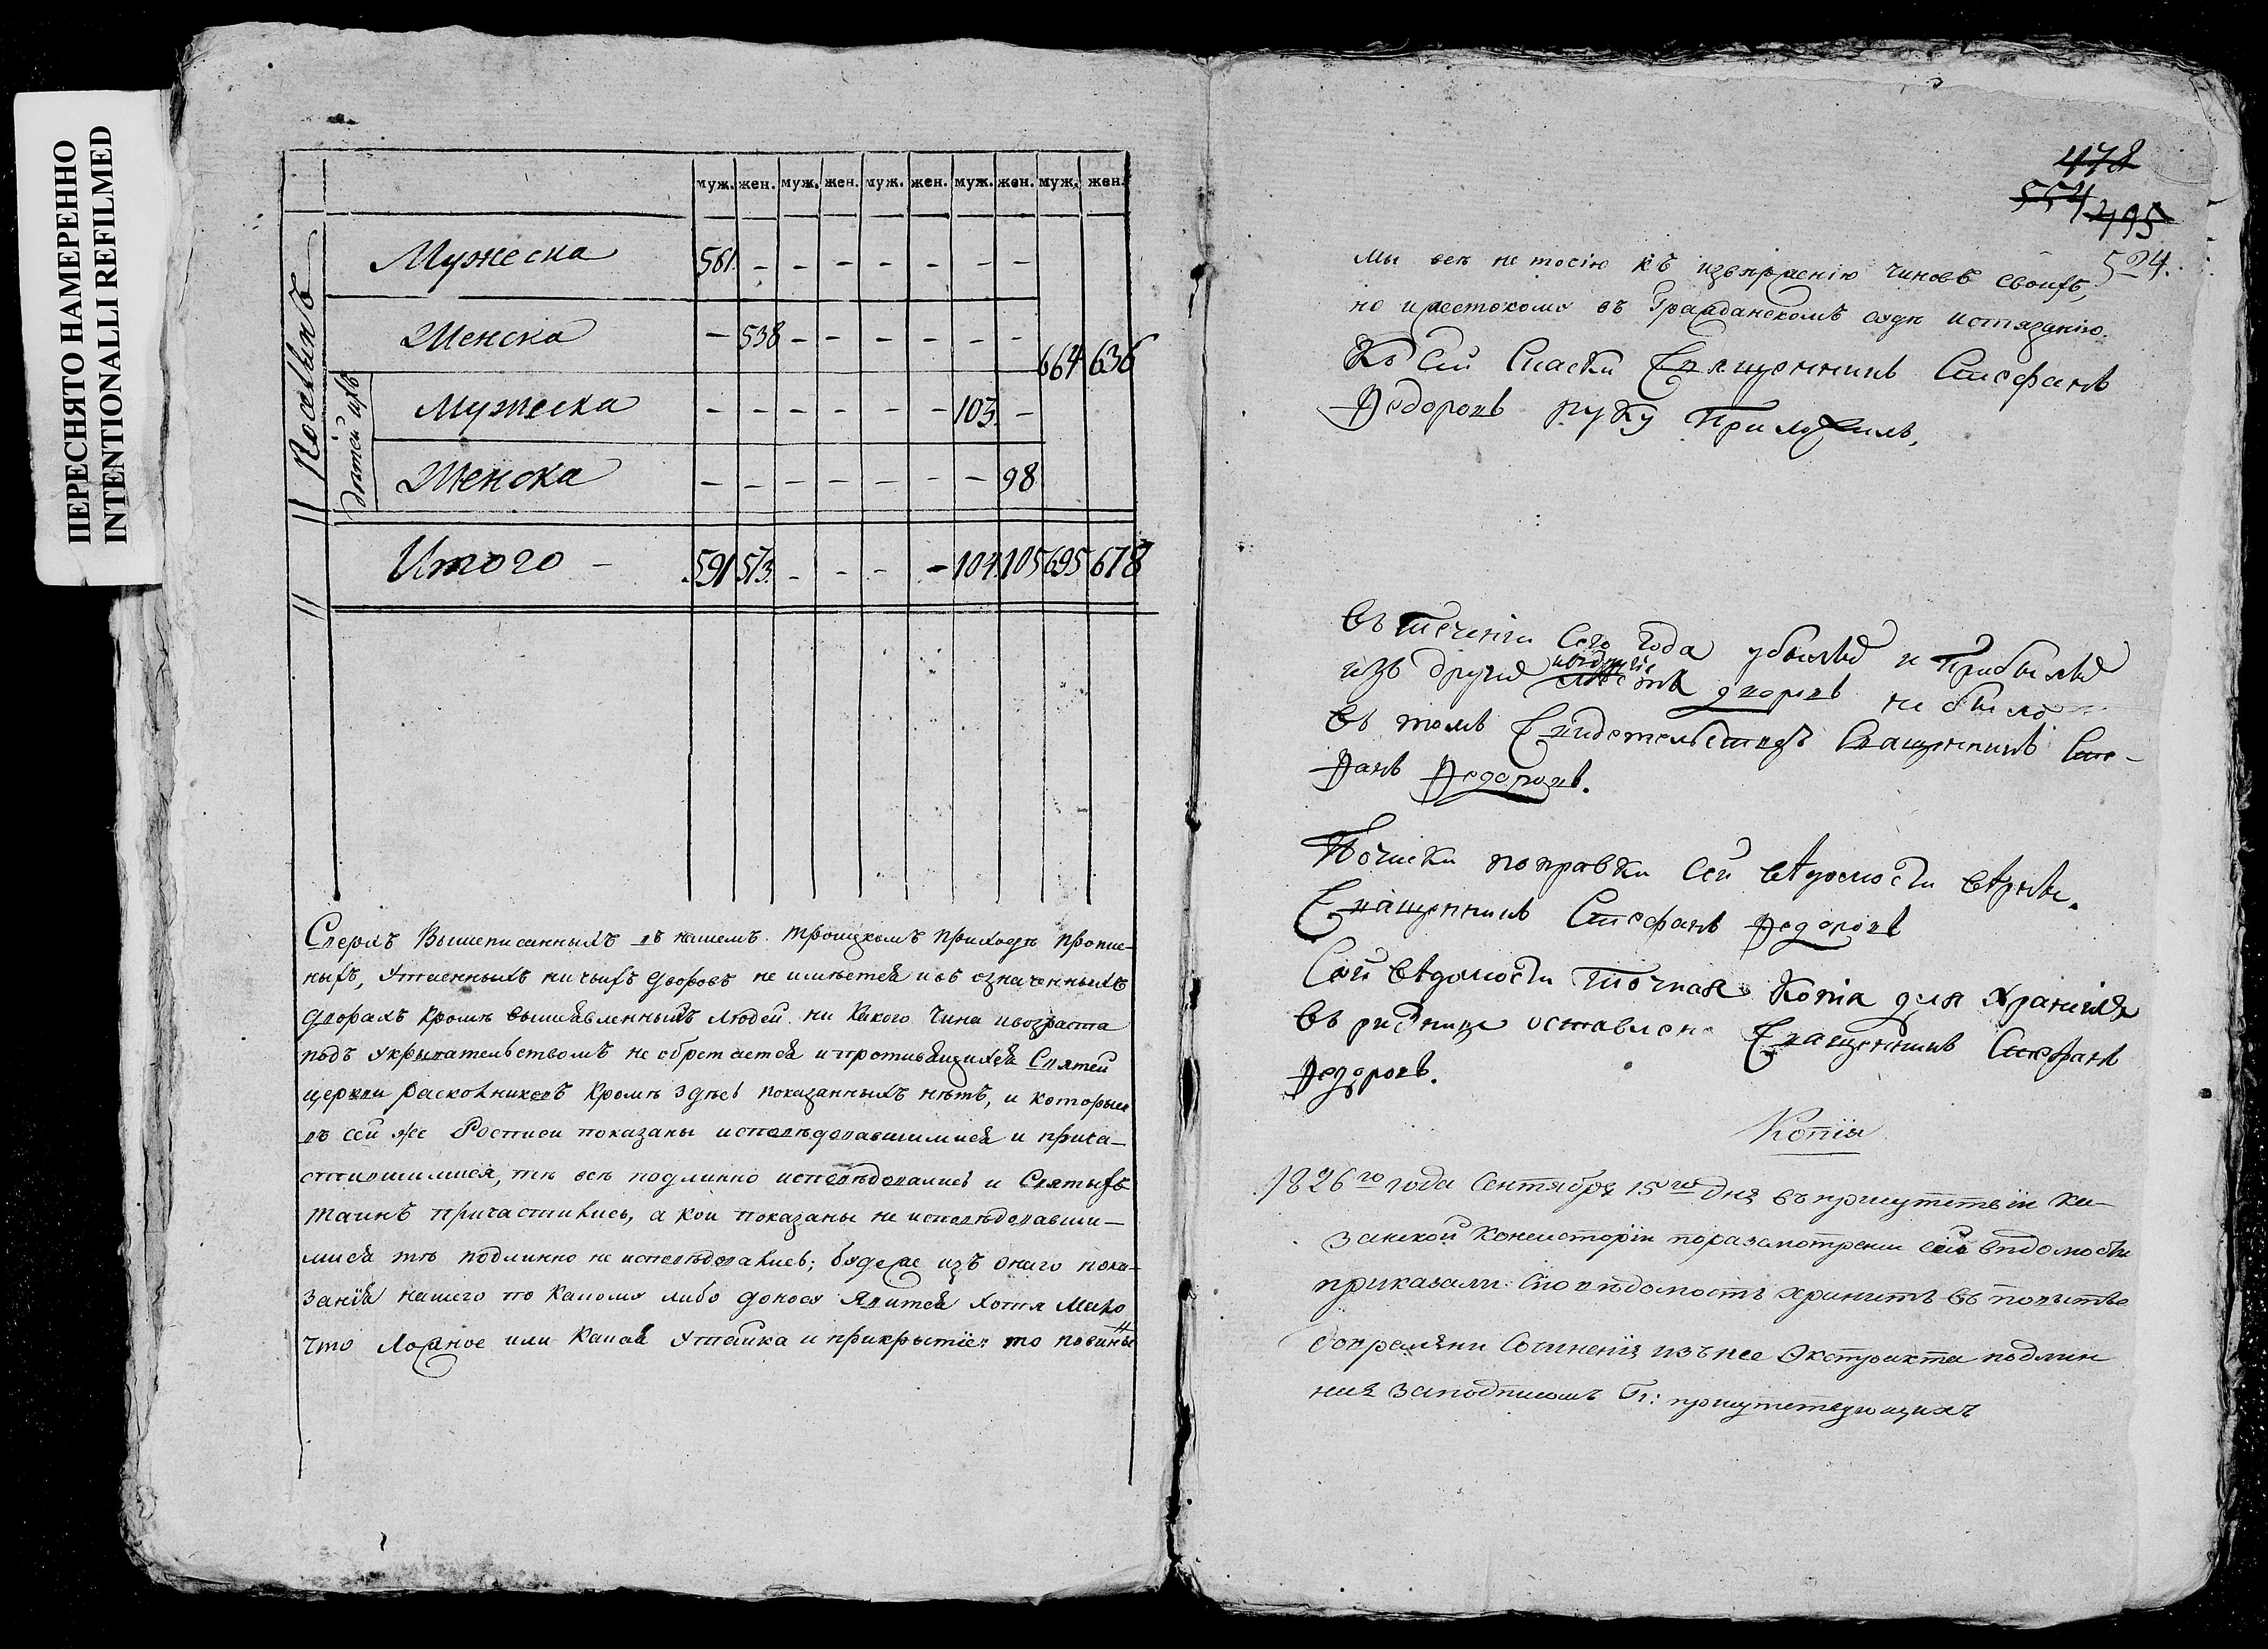 ПЕРЕСНЯТО НАМЕРЕННО
INTENTIONALLI REFILMED
муж. жен. муж. жен. муж. жен. муж. жен. муж. жен.
Мужеска 561. – – – – – – –
Женска – 538 – – – – – – 664 636
дѣтей ихъ
Мужеска – – – – – – 103. –
Женска – – – – – – – 98
Итого – 591 573. – – – – 104. 105 695 678
Сверхъ вышеписанныхъ въ нашемъ Троицкомъ приходѣ пропис–
ныхъ, утаенныхъ ничьихъ дворовъ не имѣется и въ означенныхъ
дворахъ кромѣ вышеявленныхъ людей ни какого чина и возраста
подъ укрывательствомъ не обретается и противящихся Святей
церкви расколниковъ кромѣ здѣсь показанныхъ нѣтъ, и которыя
въ сей же Росписи показаны исповѣдовавшимися и прича–
стившимися, тѣ всѣ подлинно исповѣдовались и Святыхъ
таинъ причастились, а кои показаны не исповѣдовавши–
мися тѣ подлинно не исповѣдовались; будеже изъ онаго пока–
занія нашего по какому либо доносу явится хотя мало
что ложное или какая утайка и прикрытіе: то повинны
478
554 495
524.
мы всѣ не токмо къ изверженію чиновъ своихъ,
но и жестокому въ Гражданскомъ судѣ истязанію.
Къ сей сказки Священникъ Стефанъ
Федоровъ руку приложилъ,
Въ теченіи сего года убылыхъ и прибылыхъ
изъ другихъ дворовъ не было
въ томъ свидетельствуетъ Священникъ Сте–
фанъ Федоровъ.
Почиски поправки сей вѣдомости вѣрны.
Священникъ Стефанъ Федоровъ
Сей вѣдомости точная копія для храненія
въ ризнице оставлена Священникъ Стефанъ
Федоровъ.
Копія
1826го года Сентября 15го дня въ присутствіи Ка–
занской Консисторіи по разсмотрении сей вѣдомости
приказали: Сію вѣдомость хранить въ повытье
до времяни сочиненія изъ нее Экстракта подлин
ная за подписомъ Гг: присутствующихъ